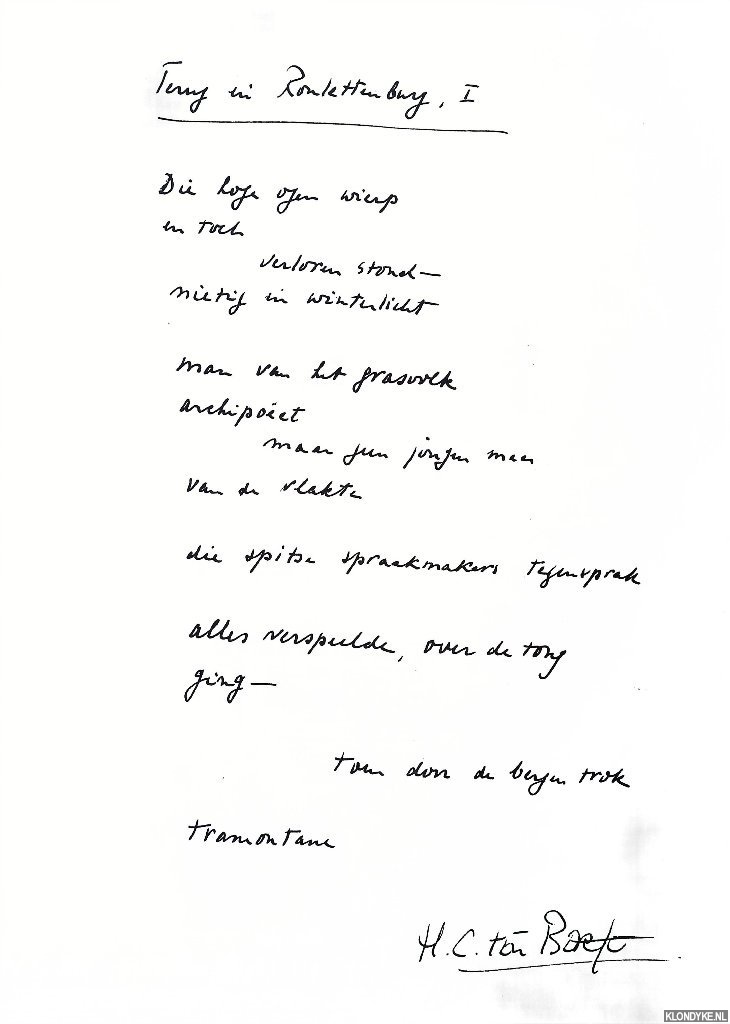 Terug in Roulettenburg, I
Die hoge ogen wierp
en toch
verloren stond—
nietig in winterlicht
man van het grasvolk
archipoëet
maar geen jongen meer
van de vlakte
die spitse spraakmakers tegensprak
alles verspeelde, over de tong
ging—
toen door de bergen trok
tramontane
H.C. ten Berge
KLONDYKE.NL